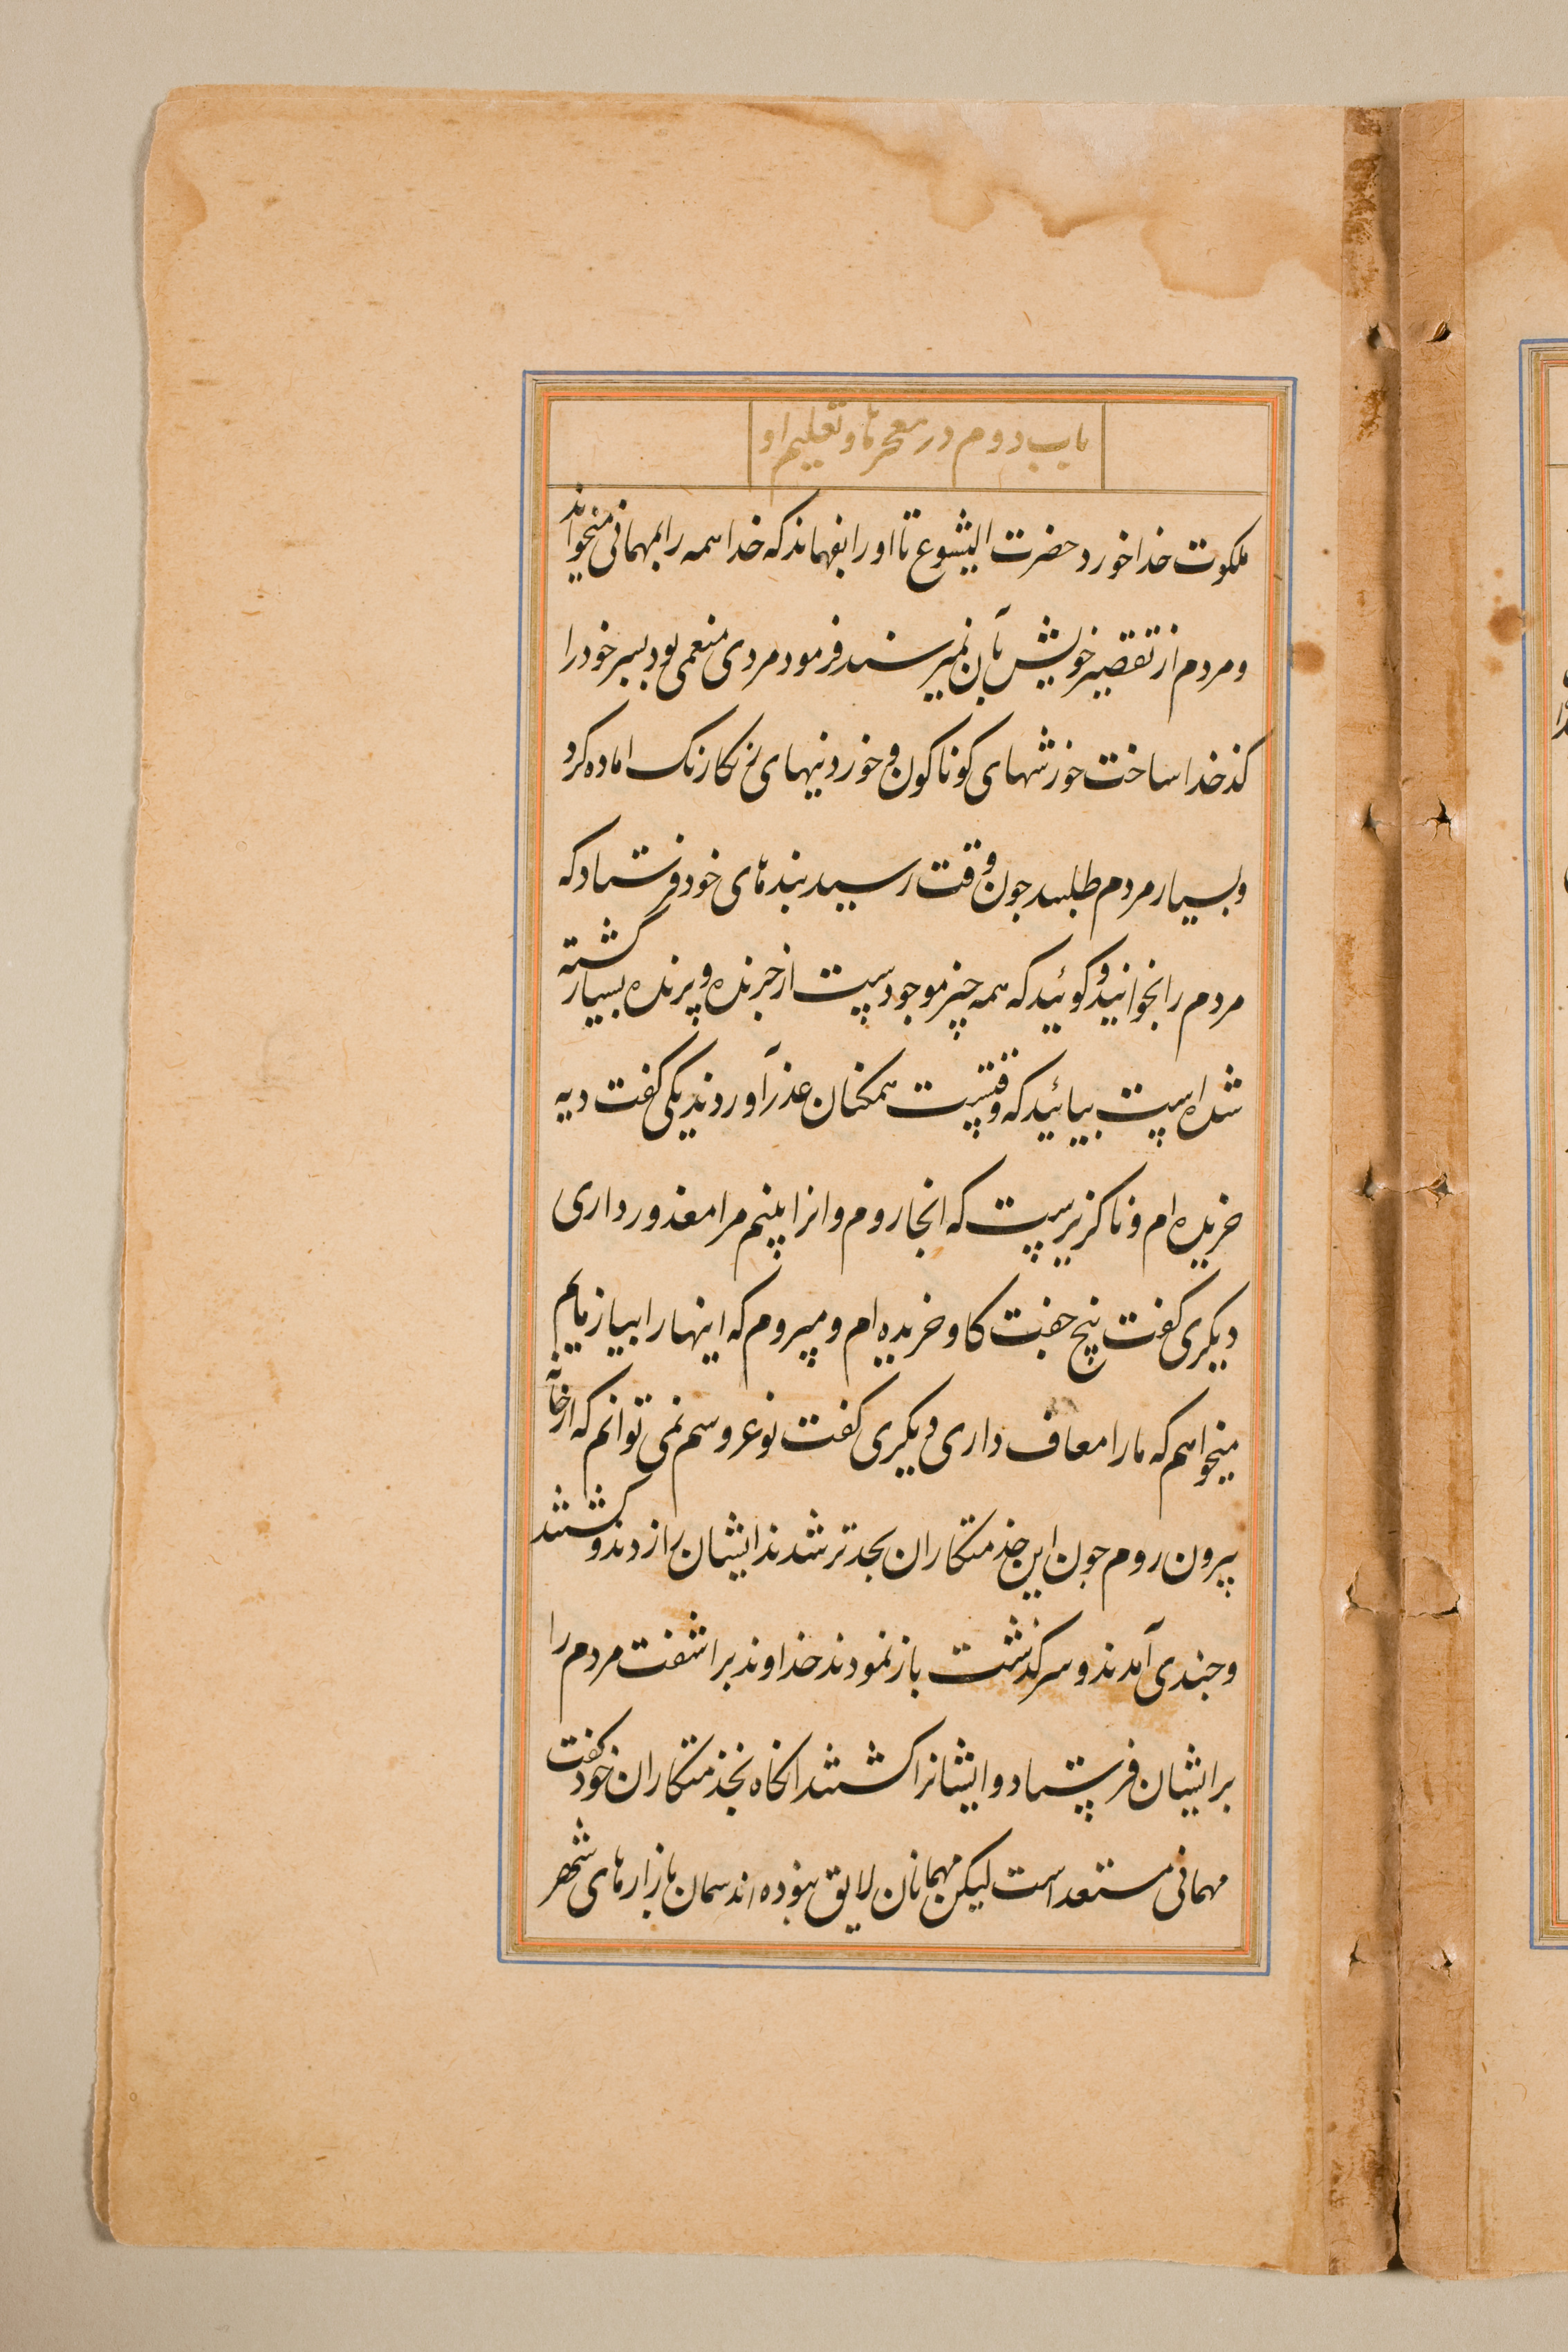 باب دوم در معجزها و تعلیم او
ملکوت خدا خورد حضرت ایشوع تا او را بفهماند که خدا همه را بمهمانی میخواند
و مردم از تقصیر خویش بآن نمیرسند فرمود مردی منعمی بود پسر خود را
کدخدا ساخت خورشهای کوناکون و خوردنیهای رنکارنک اماده کرد
و بسیار مردم طلبید جون وقت رسید بندهای خود فرستاد که
مردم را بخوانید و کوئید که همه چیز موجودست از جرنده و پرنده بسیار کشته
شده است بیائید که وقتست همکنان عذر آوردند یکی کفت دیه
خریده ام و ناکزیرست که انجا روم و انرا بینم مرا معذور داری
دیکری کفت پنج جفت کاو خریده ام و میروم که اینها را بیازمایم
میخواهم که مارا معاف داری دیکری کفت نو عروسم نمی توانم که از خانه
بیرون روم جون این خدمتکاران بجد تر شدند ایشان را زدند و کشتند
و جندی آمدند و سرکذشت باز نمودند خداوند براشفت مردم را
بر ایشان فرستاد و ایشانرا کشتند انکاه بخدمتکاران خود کفت
مهمانی مستعد است لیکن مهمانان لایق نبوده اند همان بازارهای شهر